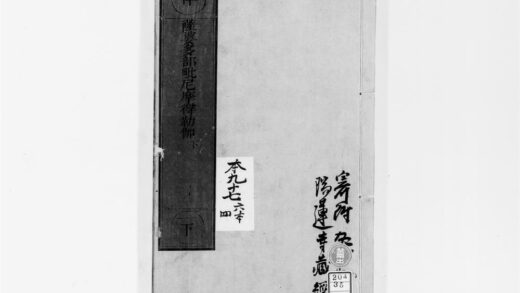 薩婆多部毗尼摩得勒伽 下
下
本九十七
六本
四
寄附
陽運寺蔵
204
35